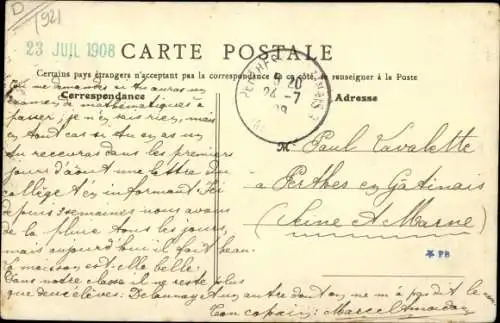 D
1921
23 JUIL 1908
CARTE POSTALE
Certains pays étrangers n'acceptant pas la correspondance de ce côté, se renseigner à la Poste
Correspondance
Adresse
24 -7
Tu me demandes si tu auras un
examen de mathématiques à
passer; je n'en sais rien, mais
en tout cas si tu en as un
tu recevras dans les premiers
jours d'août une lettre du
collège t'en informant. Ici
depuis 3 semaines nous avons
de la pluie tous les jours,
mais aujourd'hui il fait beau.
La moisson est-elle belle?
Dans notre classe il ne reste plus
que deux élèves: Delaunay et un autre dont on ne m'a pas dit le nom
Ton copain: Marcel
M. Paul Lavalette
à Perthes en Gâtinais
(Seine et Marne)
* PB